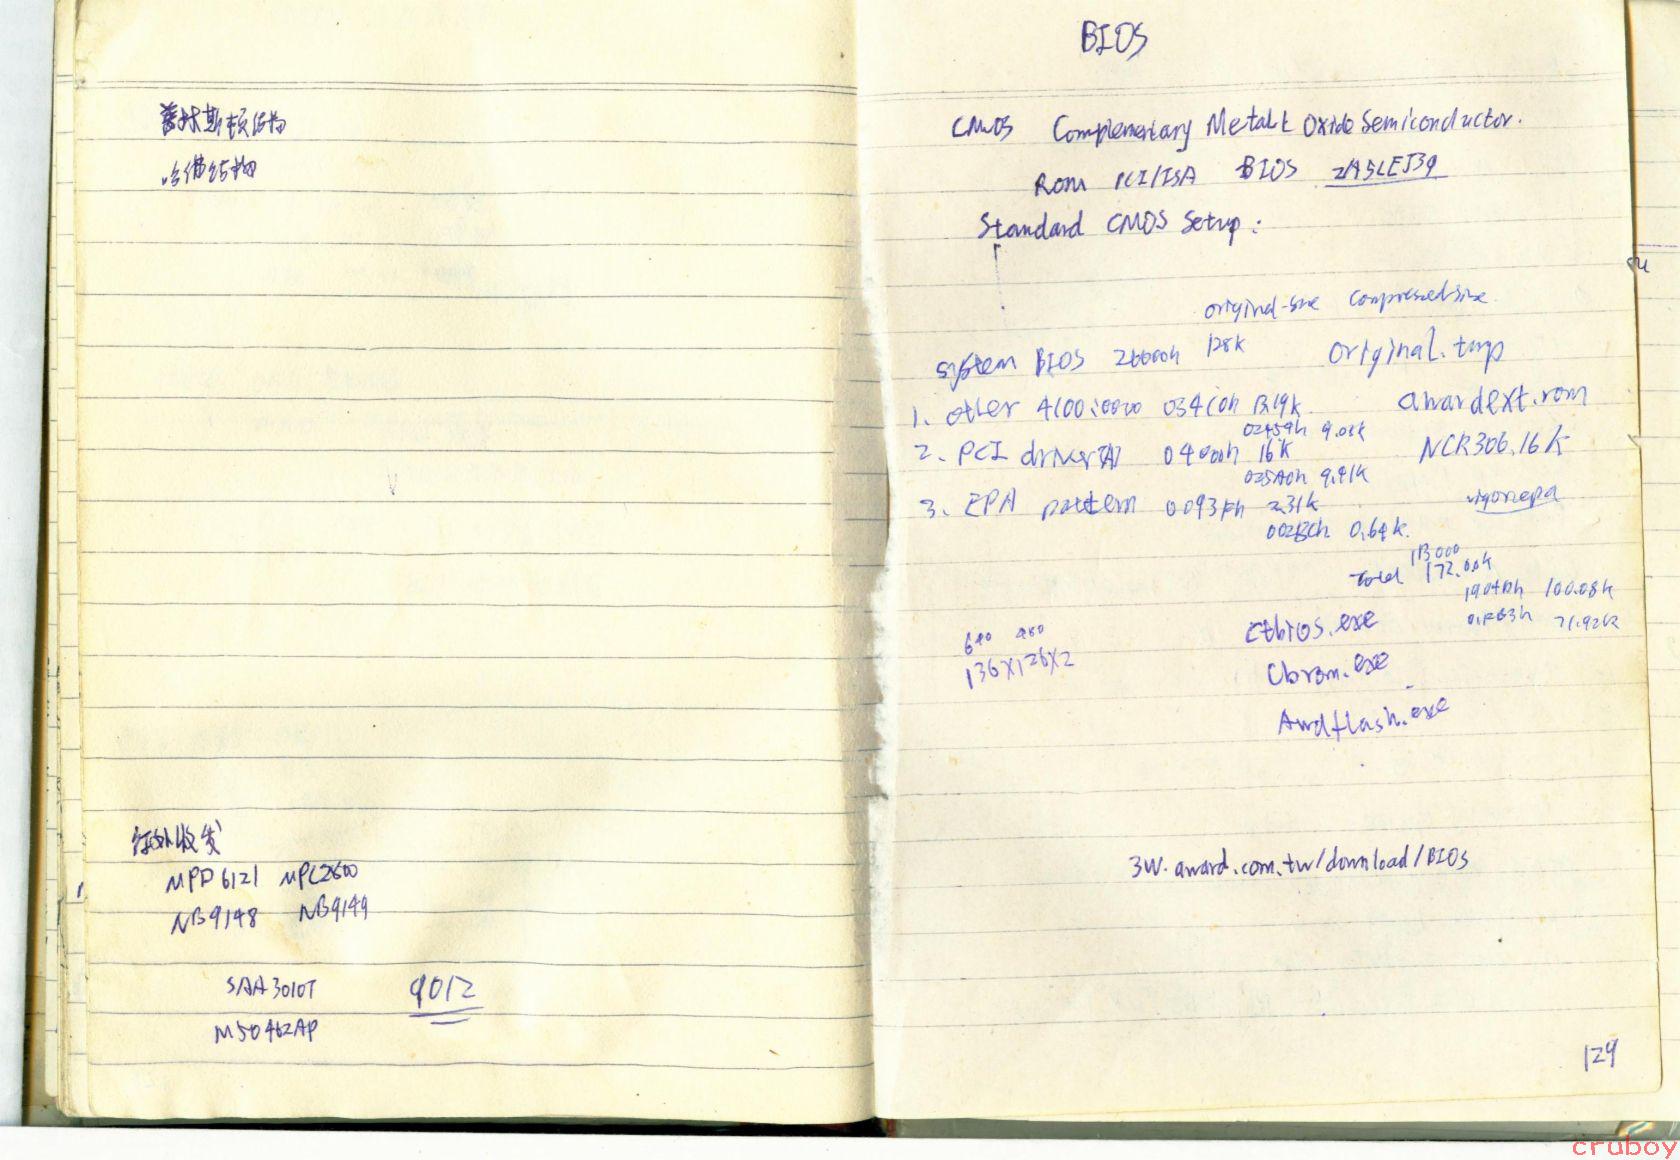 普林斯顿结构
哈佛结构
红外收发
MPD6121 MPC2600
NB9148 NB9149
SAA3010T 9012
M50462AP
BIOS
CMOS Complementary Metal Oxide Semiconductor.
Rom PCI/ISA BIOS 2A5LEJ39
Standard CMOS Setup:
original-size compressed-size
system BIOS 128k original.tmp
1. other 4100:0000 03410h 13.19k awardext.rom
02459h 9.08k
2. PCI driver[A] 04000h 16k NCR306.16k
025A0h 9.41k
3. EPA pattern 0093Fh 2.31k
002BCh 0.64k.
1B000
Total 172.00k
19040h 100.08k
71.92k
640 480 Ctbios.exe
136X126X2 Cbrom.exe
Awdflash.exe
3W.award.com.tw/download/BIOS
129
cruboy